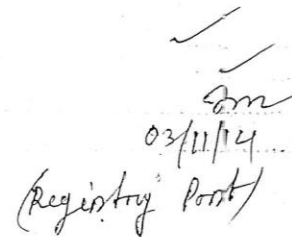 03/11/14
(Registry Post)